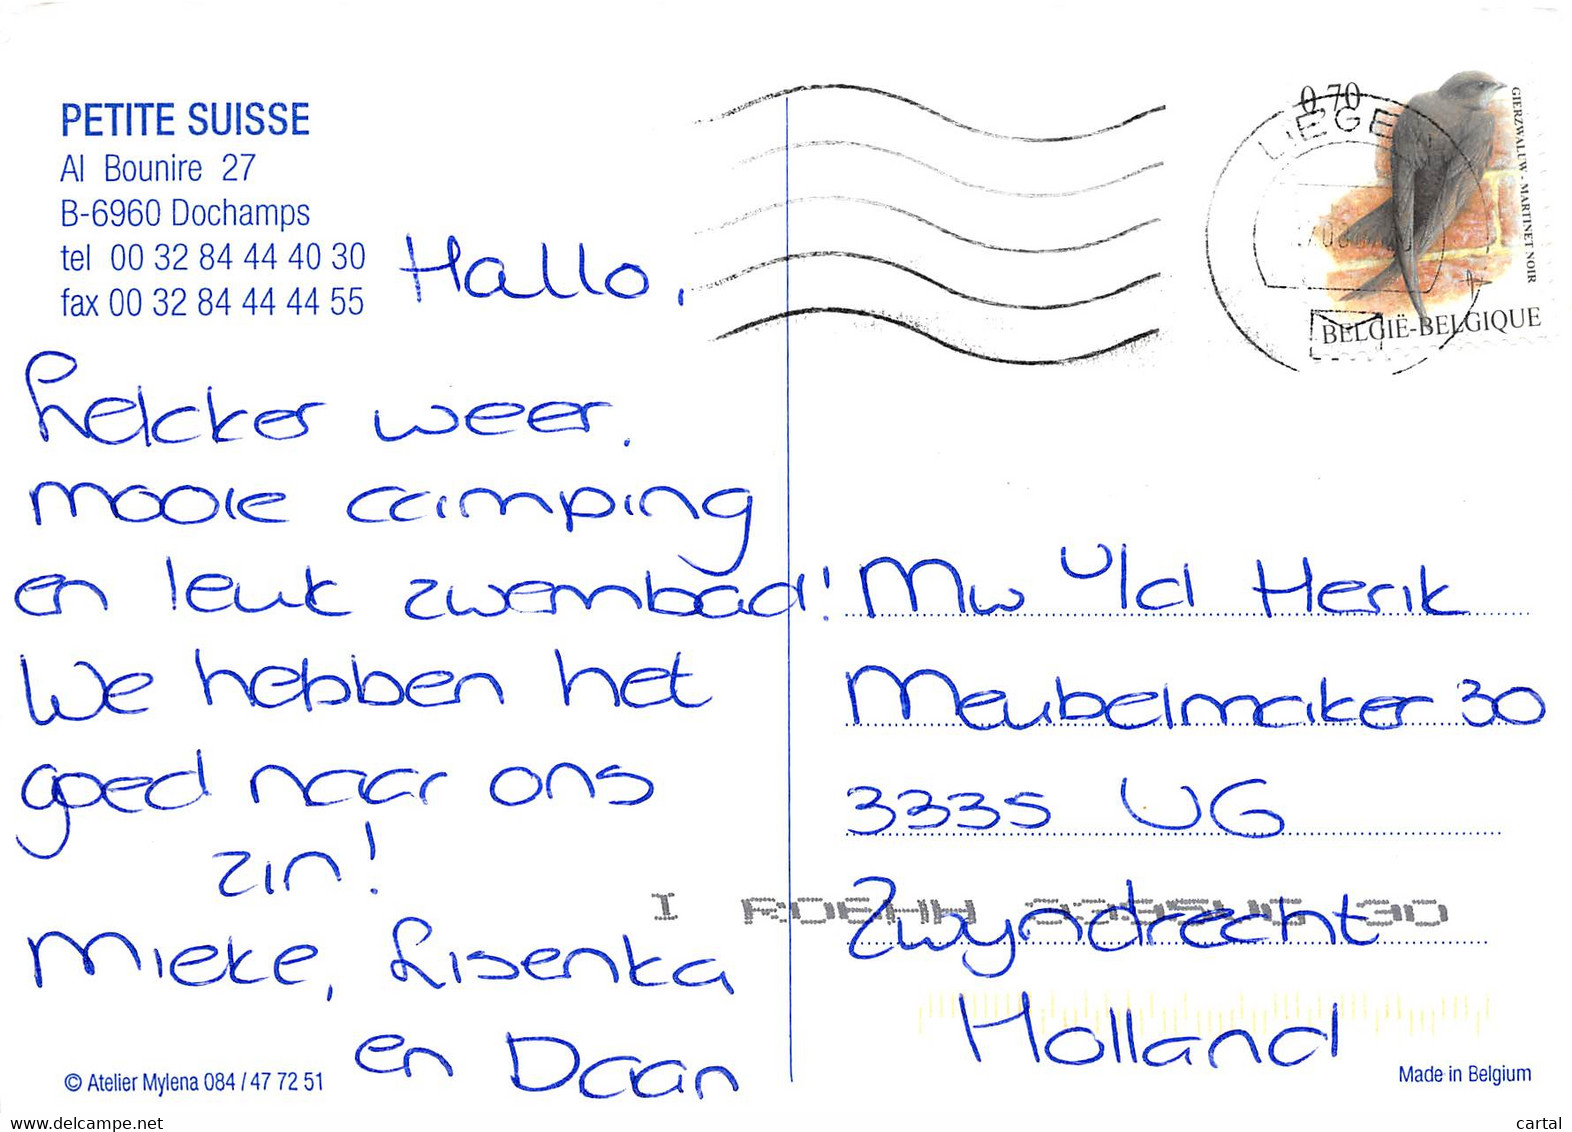 PETITE SUISSE
Al Bounire 27
B-6960 Dochamps
tel 00 32 84 44 40 30
fax 00 32 84 44 44 55
Hallo,
Lekker weer,
mooie camping
en leuk zwembad!
We hebben het
goed naar ons
zin!
Mieke, Lisenka
en Daan
© Atelier Mylena 084 / 47 72 51
0,70
LIEGE
GIERZWALUW - MARTINET NOIR
BELGIË-BELGIQUE
Mw v/d Herik
Meubelmaker 30
3335 UG
Zwyndrecht
Holland
Made in Belgium
delcampe.net
cartal